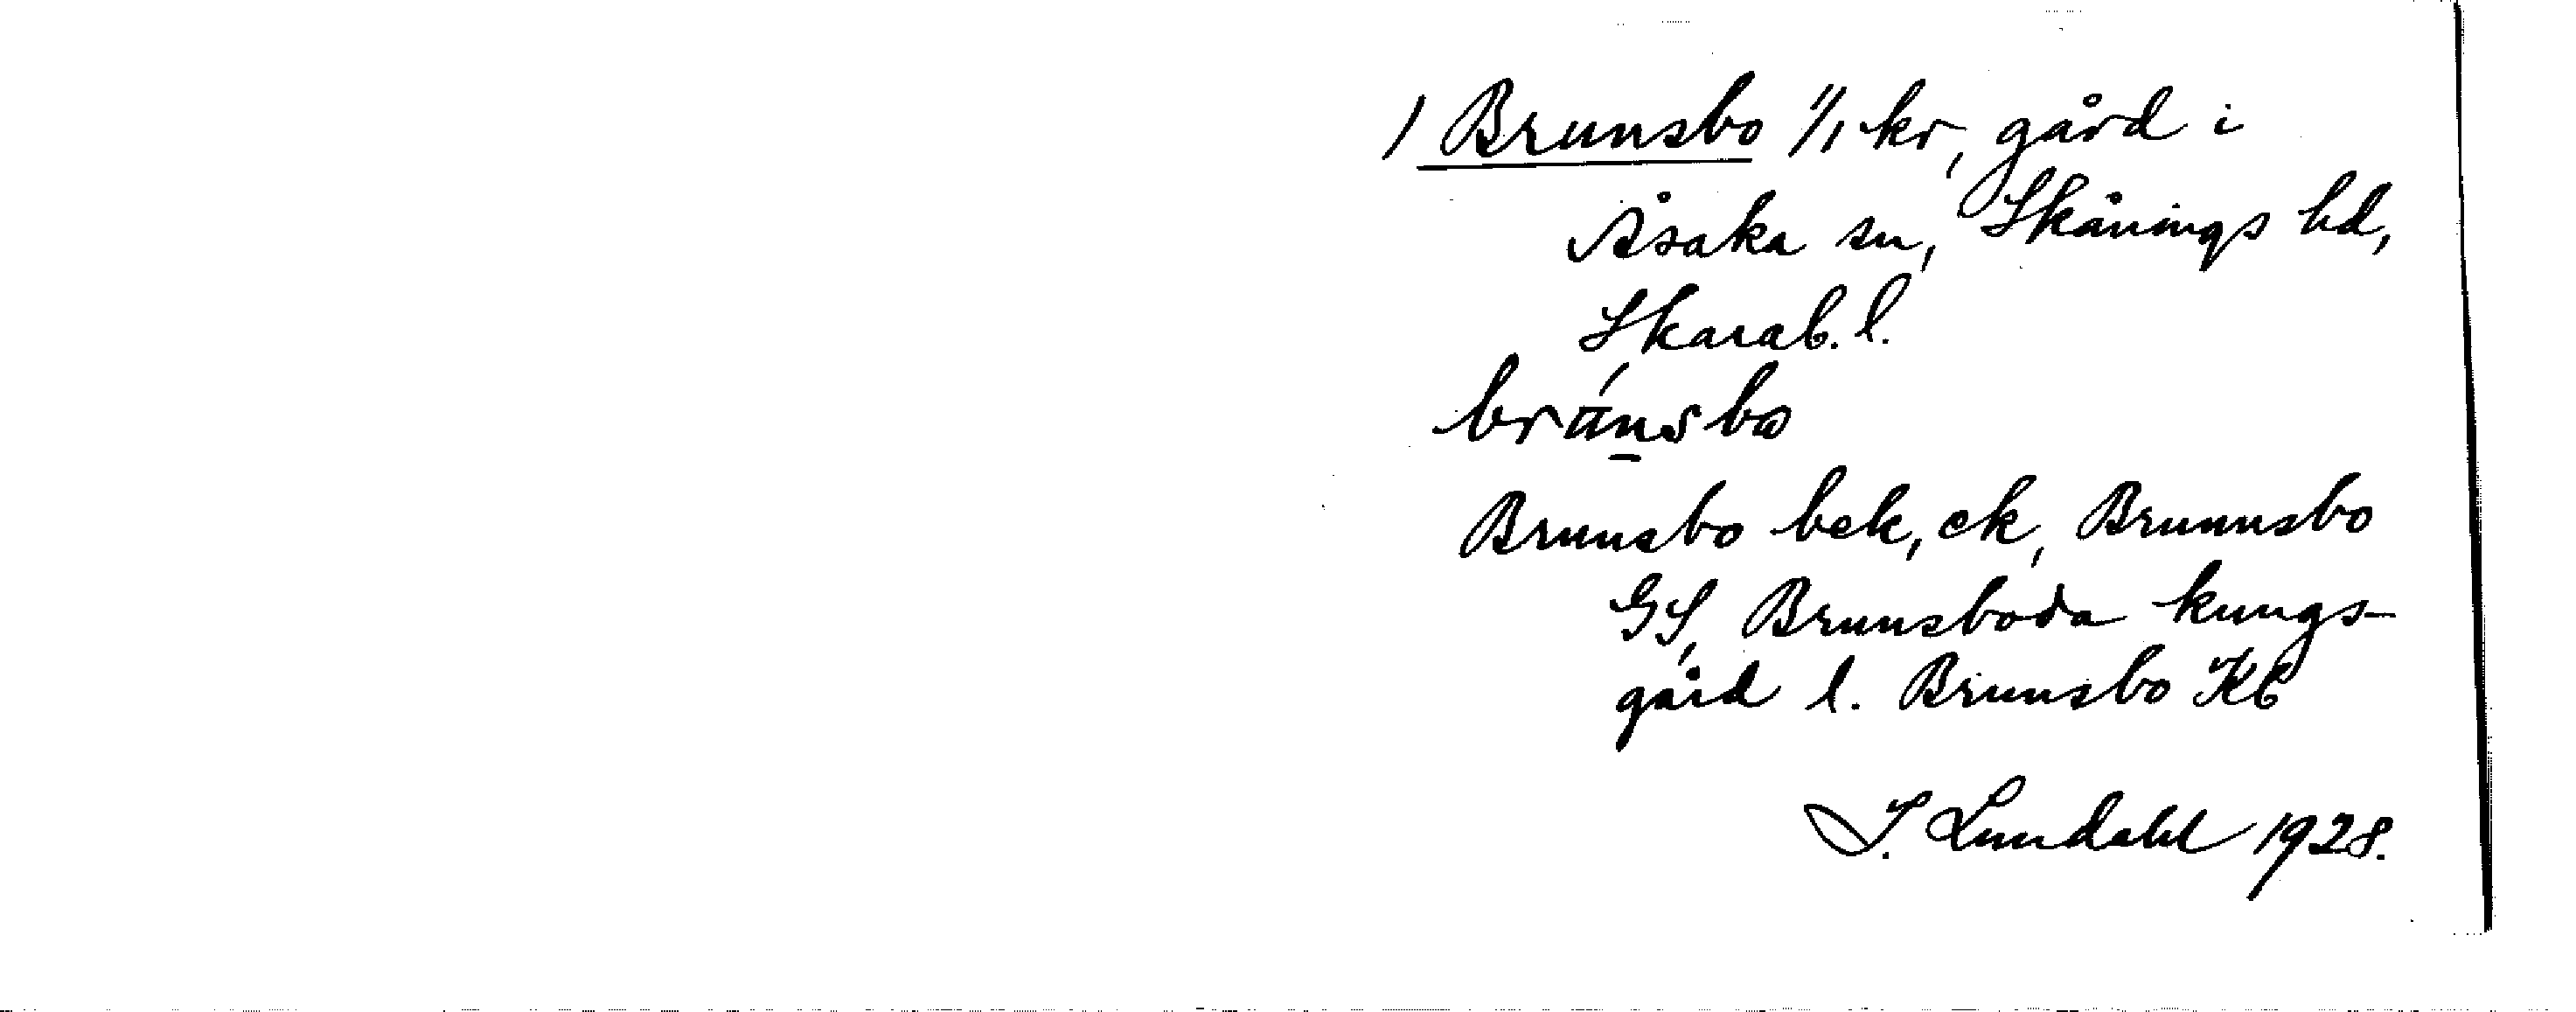 1 Brunsbo 1/1 kr, gård i
Åsaka sn, Skånings hd,
Skarab. l.
bränsbo
Brunsbo bek, ek, Brunnsbo
GS, Brunsboda kungs-
gård l. Brunsbo Kb
I. Lundahl 1928.